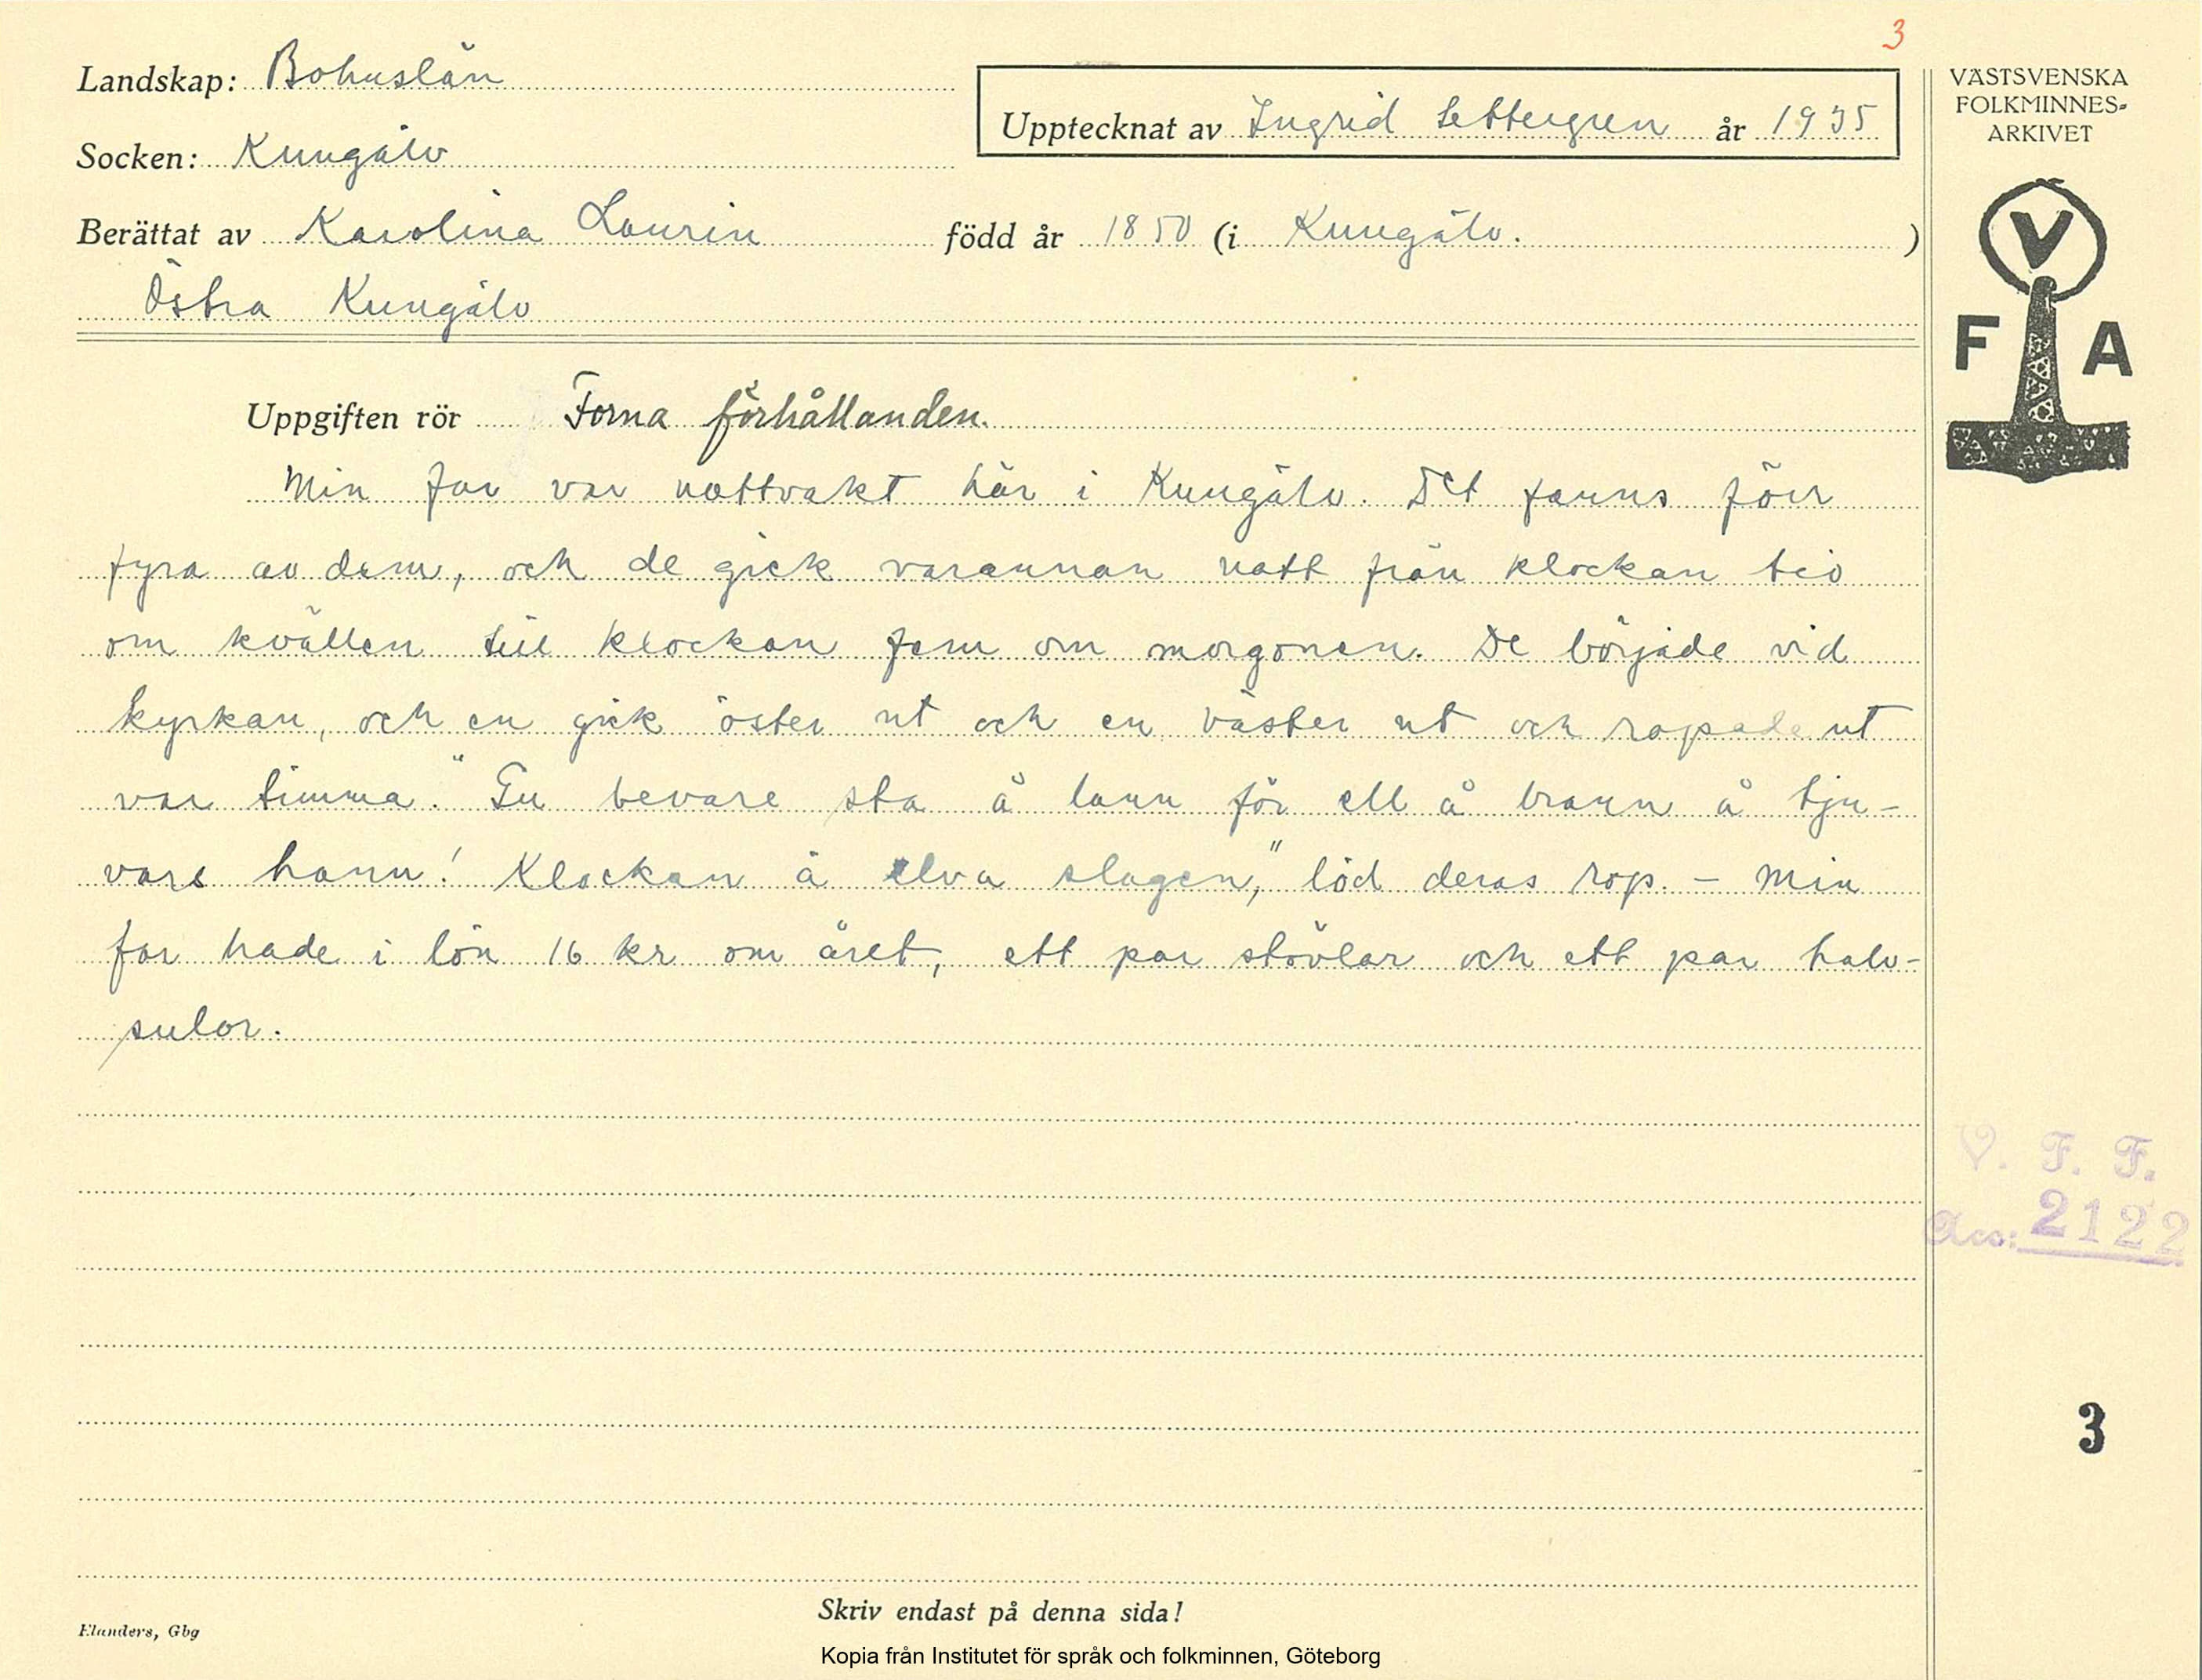 3
Landskap: Bohuslän
Upptecknat av Ingrid Settergren år 1935
Socken: Kungälv
Berättat av Karolina Laurin född år 1850 (i Kungälv. )
Östra Kungälv
VÄSTSVENSKA
FOLKMINNES-
ARKIVET
V
F A
Uppgiften rör Forna förhållanden.
Min far var nattvakt här i Kungälv. Det fanns förr
fyra av dem, och de gick varannan natt från klockan tio
om kvällen till klockan fem om morgonen. De började vid
kyrkan, och en gick öster ut och en väster ut och ropade ut
var timma. "Gu bevare sta å lann för ell å brann å tju-
vars hann! Klockan ä elva slagen," löd deras rop. – Min
far hade i lön 16 kr om året, ett par stövlar och ett par halv-
sulor.
V. F. F.
Acc: 2122
3
Skriv endast på denna sida!
Elanders, Gbg
Kopia från Institutet för språk och folkminnen, Göteborg